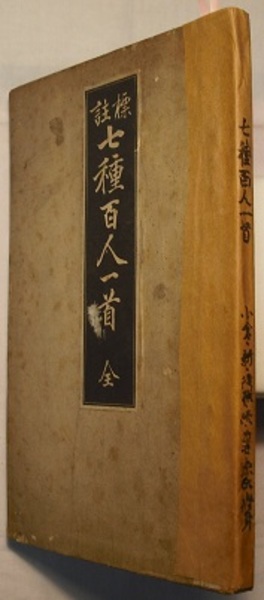 標註
七種百人一首
全
七種百人一首
小倉・新・後撰